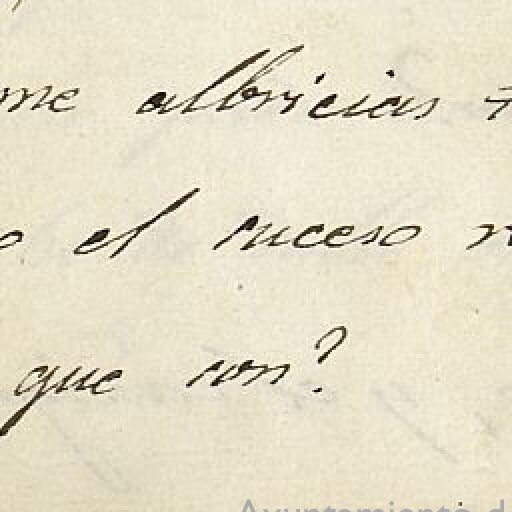 me albricias
el suceso
que son?
Ayuntamiento d